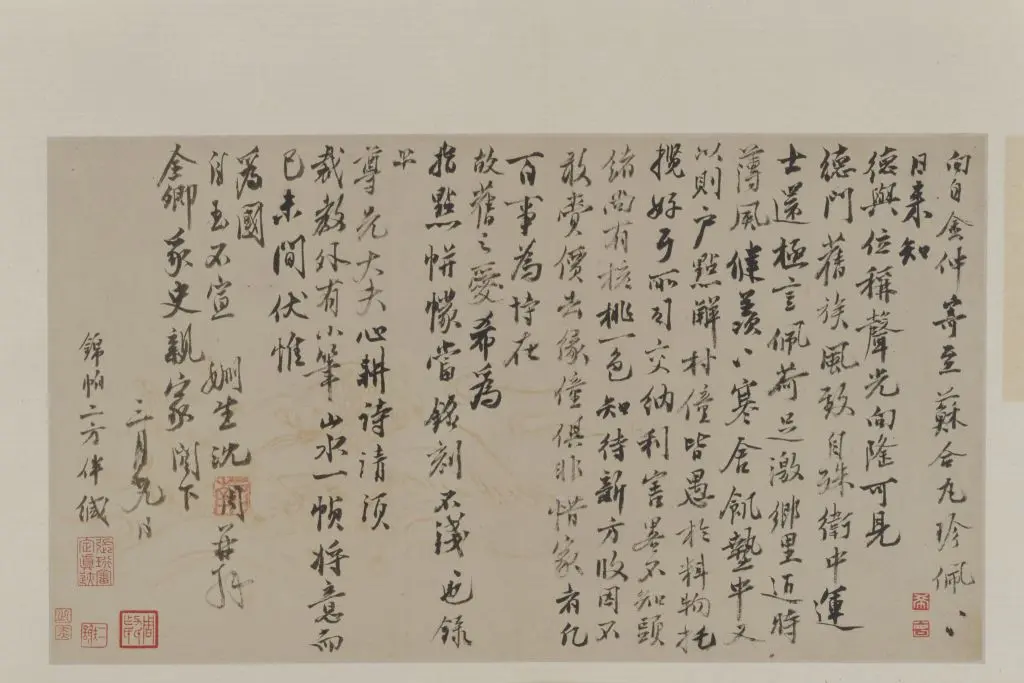 向自金仲寄至蘇合丸珍佩〻
日来知
德與位稱聲光向隆可見
德門舊族風致自殊衛中運
士還極言佩荷足激鄉里近時
薄風健羨〻寒舍飢墊中又
以則户點解村僮皆愚於料物托
攬好歹所司交納利害畧不知頭
緒尚有核桃一色知待新方收因不
敢賫價去緣僮俱非惜家者凡
百事為恃在
故舊之愛希為
指點帡幪當銘刻不淺也錄
上
尊兄大夫心耕詩請須
裁教外有小筆山水一幀將意而
已未間伏惟
爲國
自玉不宣 姻生沈周再拜
全卿家史親家閣下
三月九日
錦帕二方伴緘